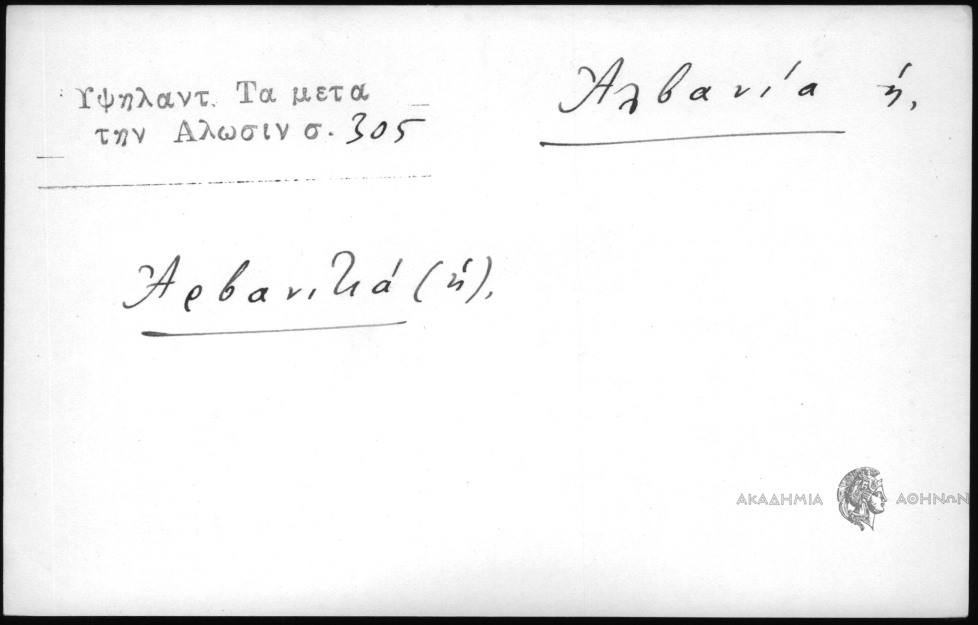 Υψηλαντ. Τα μετα
την Αλωσιν σ. 305
Ἀλβανία ἡ.
Ἀρβανιτιά (ἡ).
ΑΚΑΔΗΜΙΑ ΑΘΗΝΩΝ